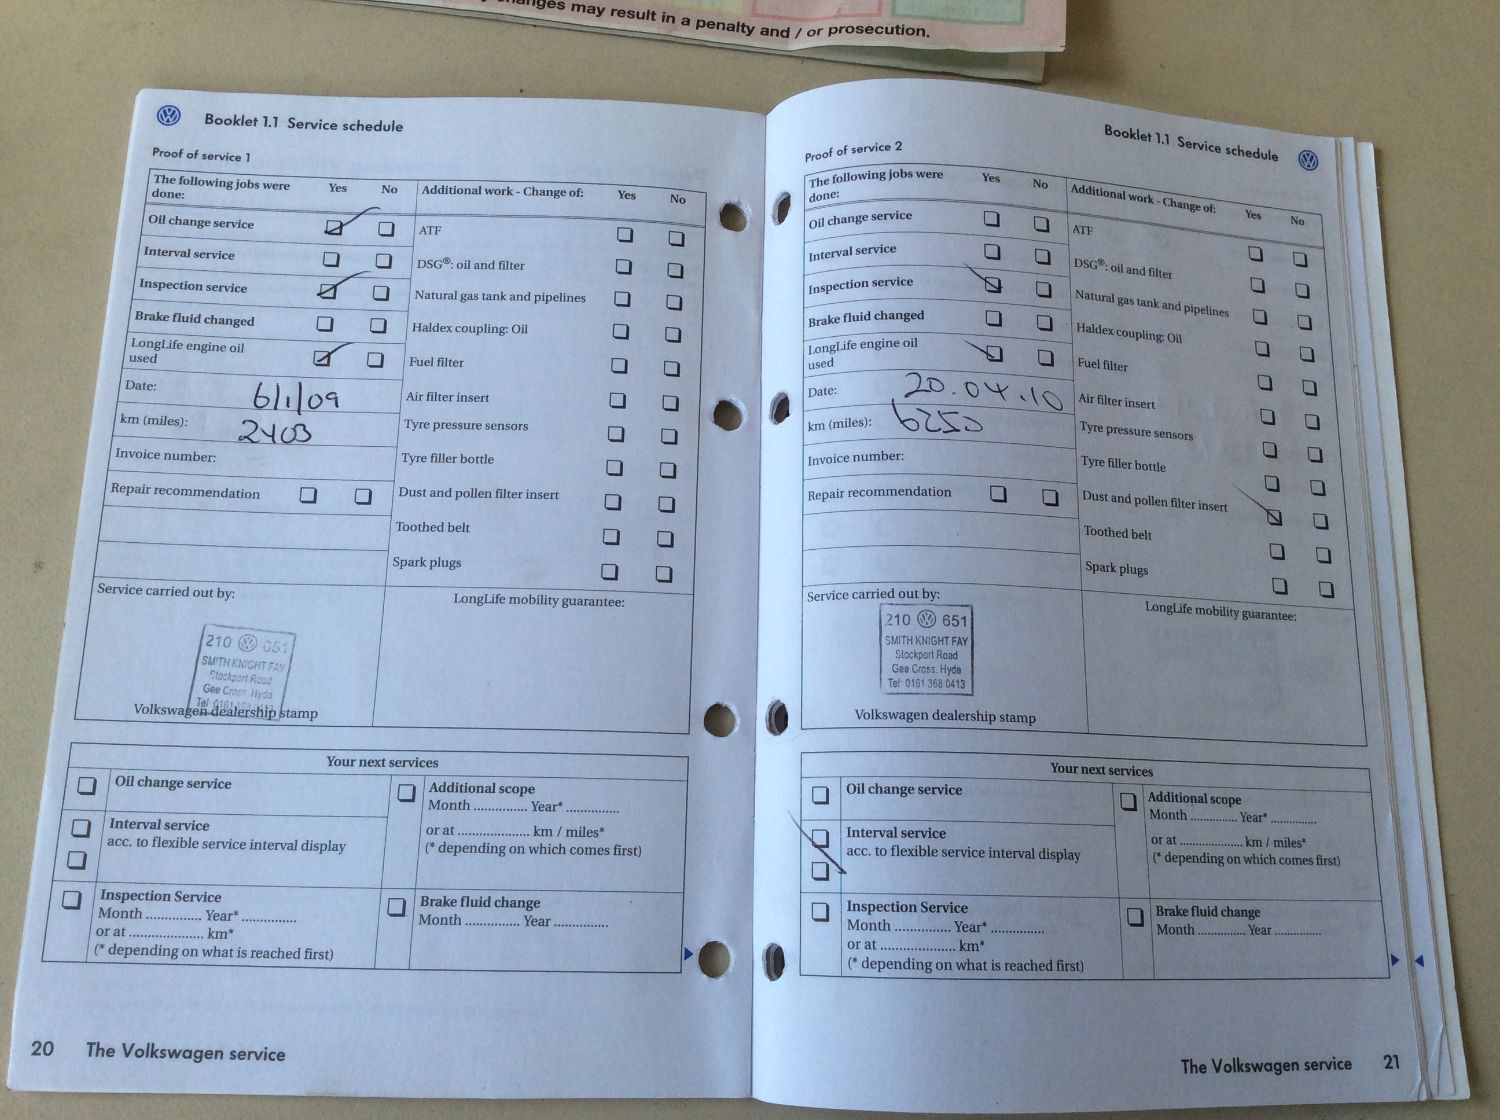 anges may result in a penalty and / or prosecution.
Booklet 1.1 Service schedule
Proof of service 1
The following jobs were done: Yes No Additional work - Change of: Yes No
Oil change service
ATF
Interval service
DSG®: oil and filter
Inspection service
Natural gas tank and pipelines
Brake fluid changed
Haldex coupling: Oil
LongLife engine oil
used
Fuel filter
Date: 6/1/09
Air filter insert
km (miles): 2403
Tyre pressure sensors
Invoice number:
Tyre filler bottle
Repair recommendation
Dust and pollen filter insert
Toothed belt
Spark plugs
Service carried out by:
LongLife mobility guarantee:
210 651
SMITH KNIGHT FAY
Stockport Road
Gee Cross, Hyde
Tel 0161
Volkswagen dealership stamp
Your next services
Oil change service
Additional scope
Month ............... Year* ...............
or at .................... km / miles*
(* depending on which comes first)
Interval service
acc. to flexible service interval display
Inspection Service
Month ............... Year* ...............
or at .................... km*
(* depending on what is reached first)
Brake fluid change
Month ............... Year ...............
20 The Volkswagen service
Booklet 1.1 Service schedule
Proof of service 2
The following jobs were done: Yes No Additional work - Change of: Yes No
Oil change service
ATF
Interval service
DSG®: oil and filter
Inspection service
Natural gas tank and pipelines
Brake fluid changed
Haldex coupling: Oil
LongLife engine oil
used
Fuel filter
Date: 20.04.10
Air filter insert
km (miles): 6250
Tyre pressure sensors
Invoice number:
Tyre filler bottle
Repair recommendation
Dust and pollen filter insert
Toothed belt
Spark plugs
Service carried out by:
LongLife mobility guarantee:
210 651
SMITH KNIGHT FAY
Stockport Road
Gee Cross, Hyde
Tel: 0161 368 0413
Volkswagen dealership stamp
Your next services
Oil change service
Additional scope
Month ............... Year* ...............
or at .................... km / miles*
(* depending on which comes first)
Interval service
acc. to flexible service interval display
Inspection Service
Month ............... Year* ...............
or at .................... km*
(* depending on what is reached first)
Brake fluid change
Month ............... Year ...............
The Volkswagen service 21